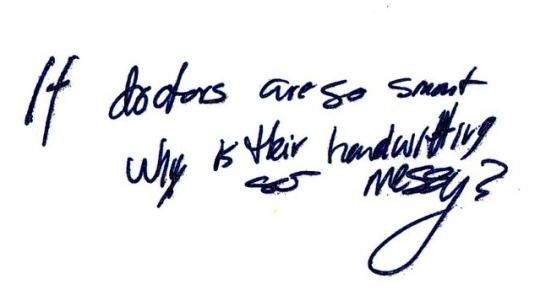 If doctors are so smart
why is their handwritting
so messy?